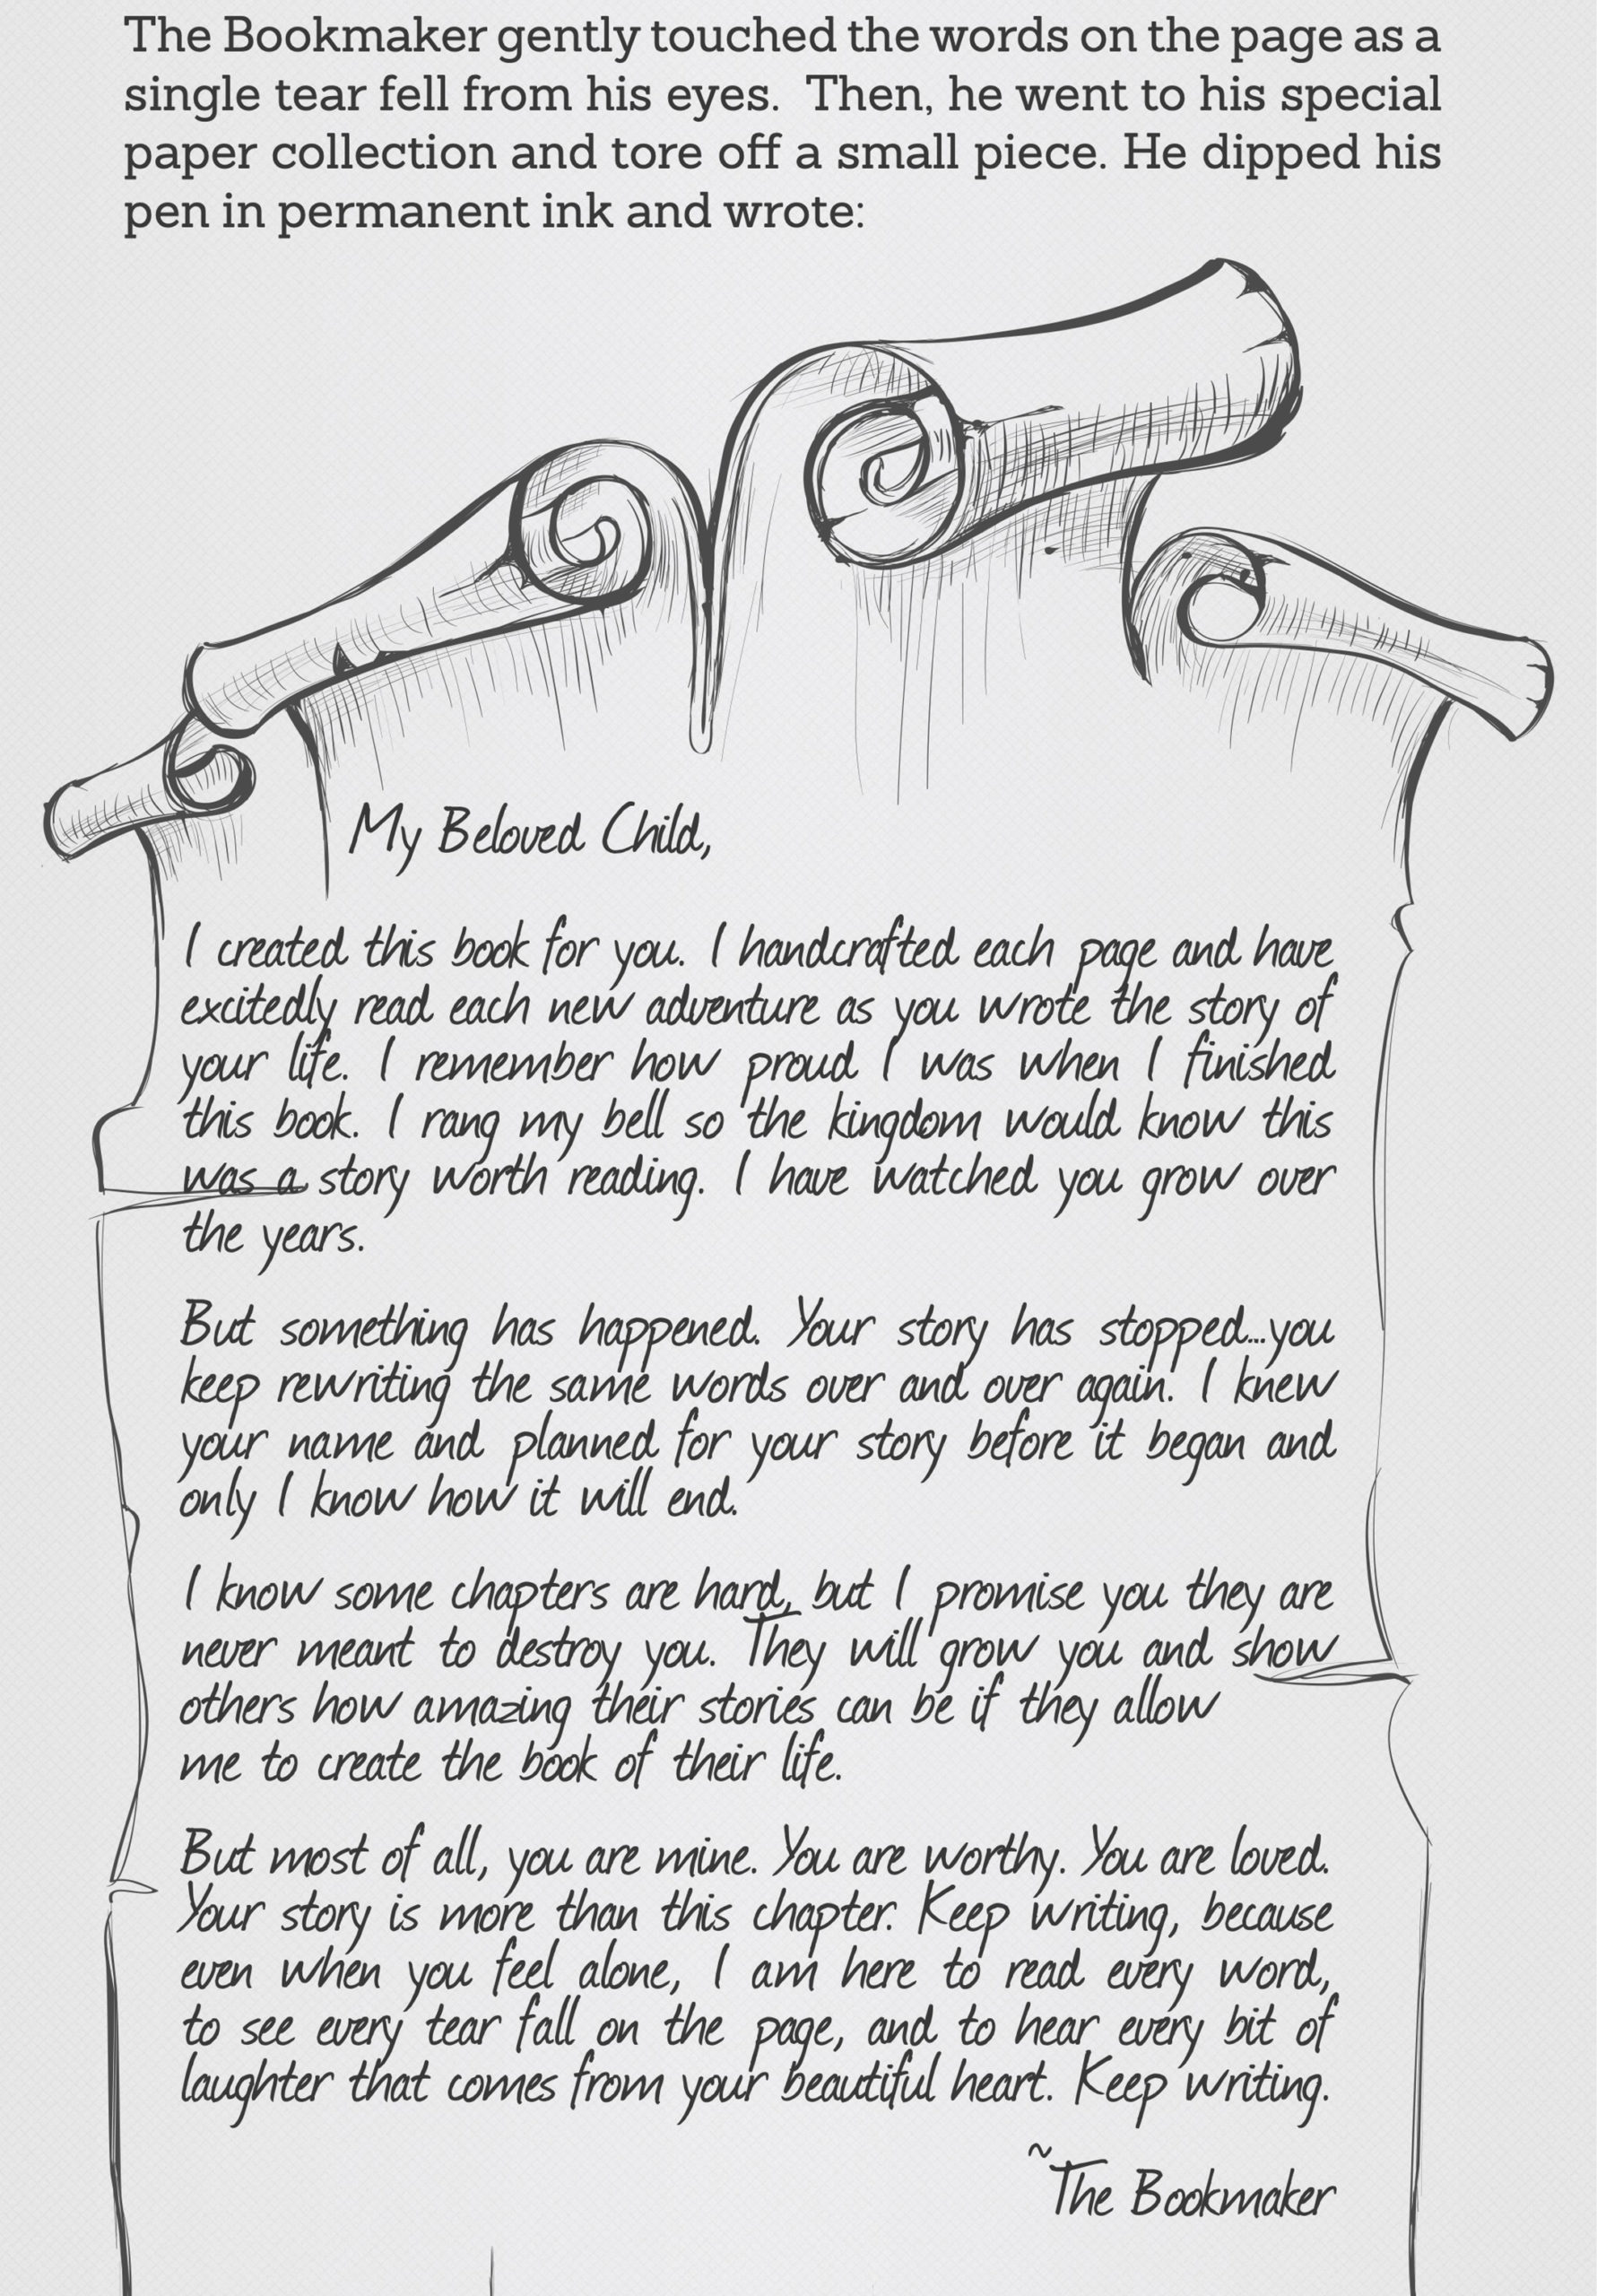 The Bookmaker gently touched the words on the page as a
single tear fell from his eyes.  Then, he went to his special
paper collection and tore off a small piece. He dipped his
pen in permanent ink and wrote:
My Beloved Child,
I created this book for you. I handcrafted each page and have
excitedly read each new adventure as you wrote the story of
your life. I remember how proud I was when I finished
this book. I rang my bell so the kingdom would know this
was a story worth reading. I have watched you grow over
the years.
But something has happened. Your story has stopped...you
keep rewriting the same words over and over again. I knew
your name and planned for your story before it began and
only I know how it will end.
I know some chapters are hard, but I promise you they are
never meant to destroy you. They will grow you and show
others how amazing their stories can be if they allow
me to create the book of their life.
But most of all, you are mine. You are worthy. You are loved.
Your story is more than this chapter. Keep writing, because
even when you feel alone, I am here to read every word,
to see every tear fall on the page, and to hear every bit of
laughter that comes from your beautiful heart. Keep writing.
~The Bookmaker